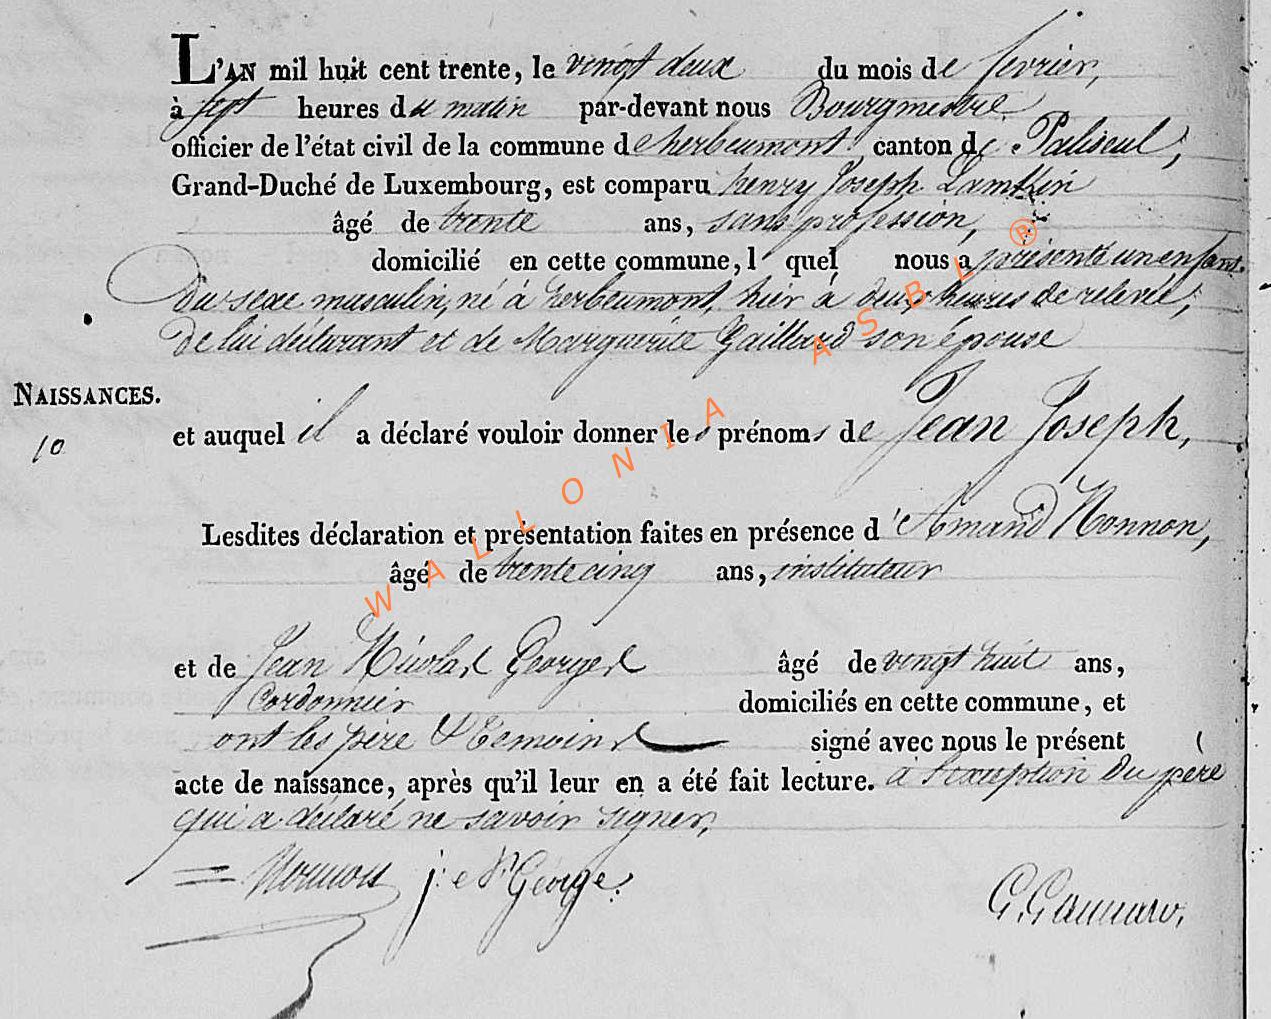 L'AN mil huit cent trente, le vingt deux du mois de fevrier,
à sept heures du matin par-devant nous Bourgmestre
officier de l'état civil de la commune de herbeumont canton de Paliseul,
Grand-Duché de Luxembourg, est comparu henry Joseph Lambin
âgé de trente ans, sans profession,
domicilié en cette commune, l quel nous a présenté un enfant
Du sexe masculin, né à herbeumont, hier à deux heures de relevée,
De lui déclarant et de Marguerite Gaillard son épouse
NAISSANCES.
10
et auquel il a déclaré vouloir donner les prénoms de Jean Joseph,
Lesdites déclaration et présentation faites en présence d'Amand Nonnon,
âgé de trente cinq ans, instituteur
et de Jean Nicolas Georges âgé de vingt huit ans,
Cordonnier domiciliés en cette commune, et
ont les père & Temoins signé avec nous le présent
acte de naissance, après qu'il leur en a été fait lecture. à l'exception du père
qui a déclaré ne savoir signer,
Nonnon j. George.
WALLONIA ASBL ®